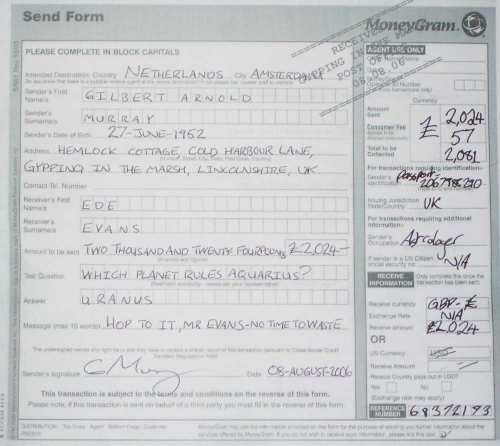 Send Form
MoneyGram
PLEASE COMPLETE IN BLOCK CAPITALS
RECEIVED
GYPPING IN THE
POST
08 08 06
AGENT USE ONLY
Intended Destination: Country NETHERLANDS City AMSTERDAM
Sender's First Name/s GILBERT ARNOLD
Sender's Surname/s MURRAY
Sender's Date of Birth 27-JUNE-1952
Address HEMLOCK COTTAGE, COLD HARBOUR LANE,
GYPPING IN THE MARSH, LINCOLNSHIRE, UK
Contact Tel. Number
Receiver's First Name/s EDE
Receiver's Surname/s EVANS
Amount to be sent TWO THOUSAND AND TWENTY FOUR POUNDS £2,024-
Test Question WHICH PLANET RULES AQUARIUS?
Answer URANUS
Message (max 10 words) HOP TO IT, MR EVANS-NO TIME TO WASTE
Sender's signature Date 08-AUGUST-2006
This transaction is subject to the terms and conditions on the reverse of this form.
Please note, if this transaction is sent on behalf of a third party you must fill in the reverse of this form.
Currency
Amount Sent £ 2,024
Consumer Fee 57
Total to be Collected 2,081
For transactions requiring identification-
Sender's Identification Passport-
Issuing Jurisdiction State/Country UK
For transactions requiring additional information-
Sender's Occupation Astrologer
If sender is a US Citizen social security no. N/A
RECEIVE INFORMATION Only complete once the transaction has been sent.
Receive currency GBP-£
Exchange Rate N/A
Receive amount £2,024
OR
US Currency
Receive Amount
Receive Country pays out in USD?
Yes No
(Exchange rate may apply)
REFERENCE NUMBER 68372193